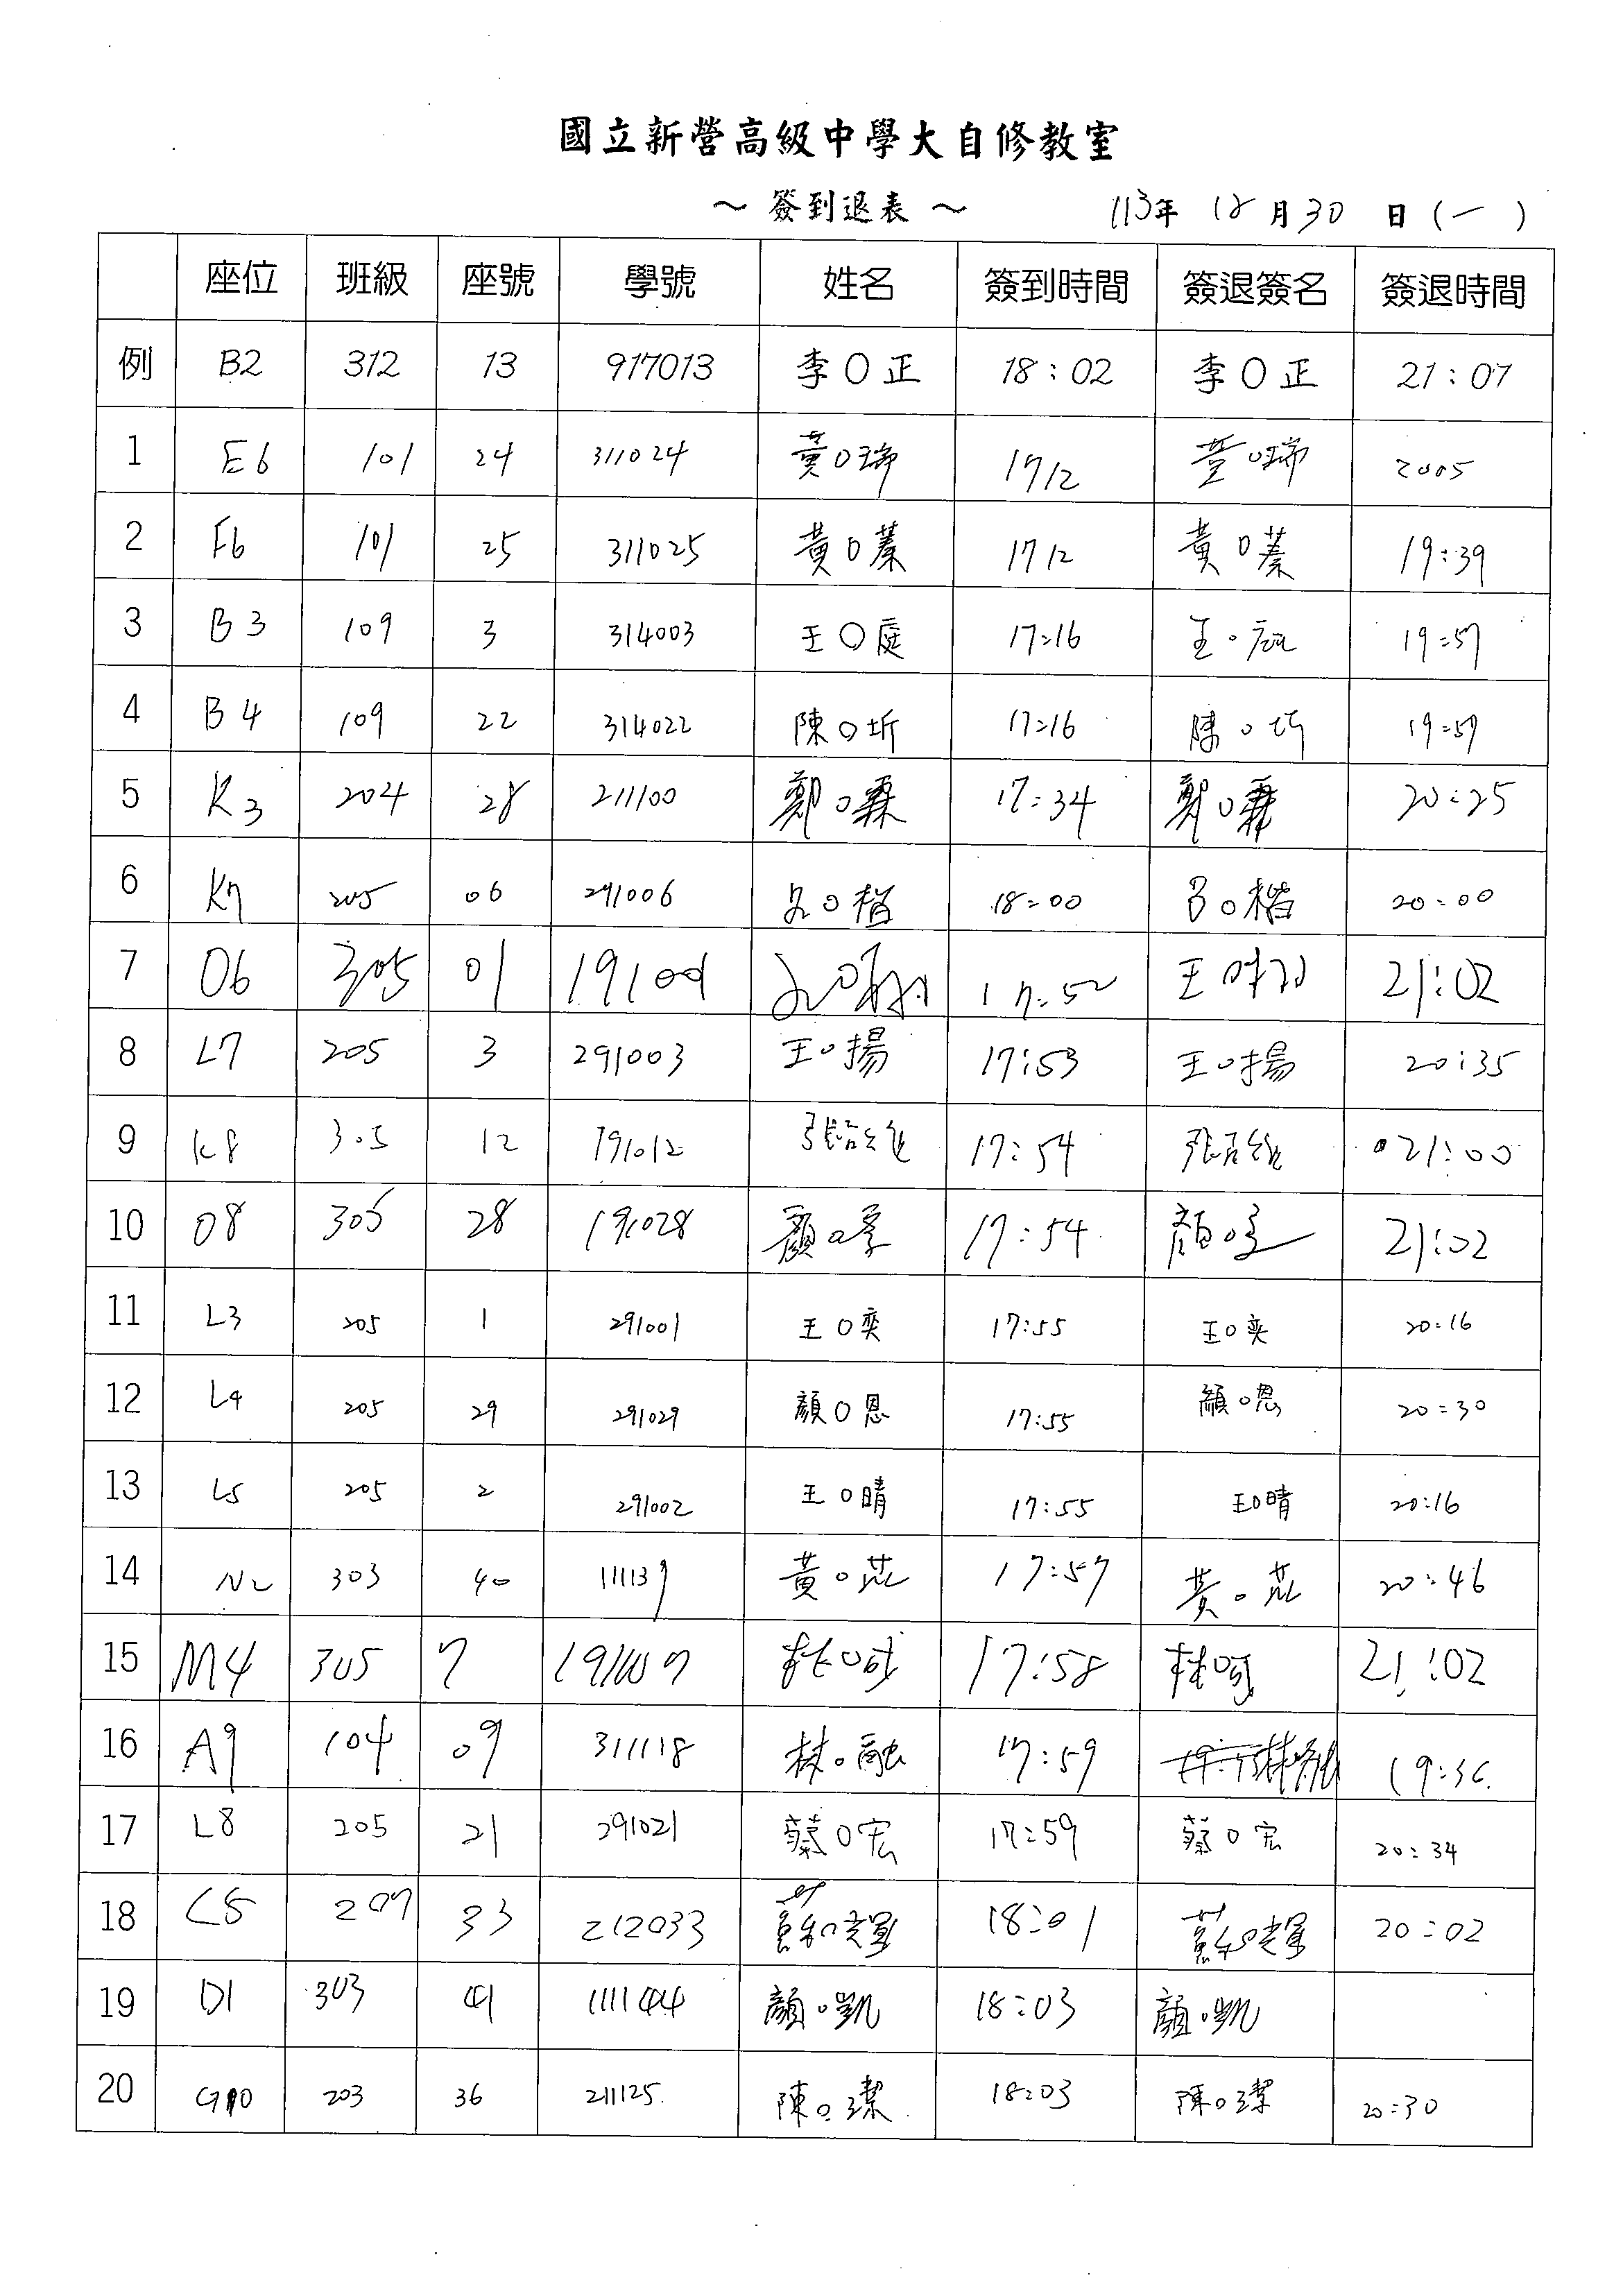 國立新營高級中學大自修教室
～ 簽到退表 ～ 113年 12月30 日(一)
座位 班級 座號 學號 姓名 簽到時間 簽退簽名 簽退時間
例 B2 312 13 917013 李〇正 18:02 李〇正 21:07
1 E6 101 24 311024 黃〇瑞 1712 黃〇瑞 2005
2 F6 101 25 311025 黃〇蓁 1712 黃〇蓁 19:39
3 B3 109 3 314003 王〇庭 17:16 王〇庭 19:57
4 B4 109 22 314022 陳〇圻 17:16 陳〇圻 19:57
5 K3 204 28 211100 鄭〇霖 17:34 鄭〇霖 20:25
6 K7 205 06 291006 呂〇楷 18:00 呂〇楷 20:00
7 O6 305 01 191001 王〇 17:52 王〇 21:02
8 L7 205 3 291003 王〇揚 17:53 王〇揚 20:35
9 K8 305 12 191012 張 17:54 張 21:00
10 O8 305 28 191028 顏〇 17:54 顏〇 21:02
11 L3 205 1 291001 王〇奕 17:55 王〇奕 20:16
12 L4 205 29 291029 顏〇恩 17:55 顏〇恩 20:30
13 L5 205 2 291002 王〇晴 17:55 王〇晴 20:16
14 N2 303 40 111137 黃〇芘 17:57 黃〇芘 20:46
15 M4 305 7 191007 林〇 17:58 林〇 21:02
16 A9 104 09 311118 林〇融 17:59 林〇融 19:36
17 L8 205 21 291021 蔡〇宏 17:59 蔡〇宏 20:34
18 C5 207 33 212033 蘇〇輝 18:01 蘇〇輝 20:02
19 D1 303 41 111144 顏〇凱 18:03 顏〇凱
20 G10 203 36 211125 陳〇潔 18:03 陳〇潔 20:30